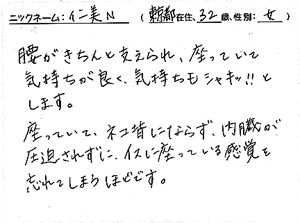 ニックネーム：仁美N （東京都在住、32歳、性別：女）
腰がきちんと支えられ、座っていて
気持ちが良く、気持ちもシャキッ!!と
します。
座っていて、ネコ背にならず、内臓が
圧迫されずに、イスに座っている感覚を
忘れてしまうほどです。